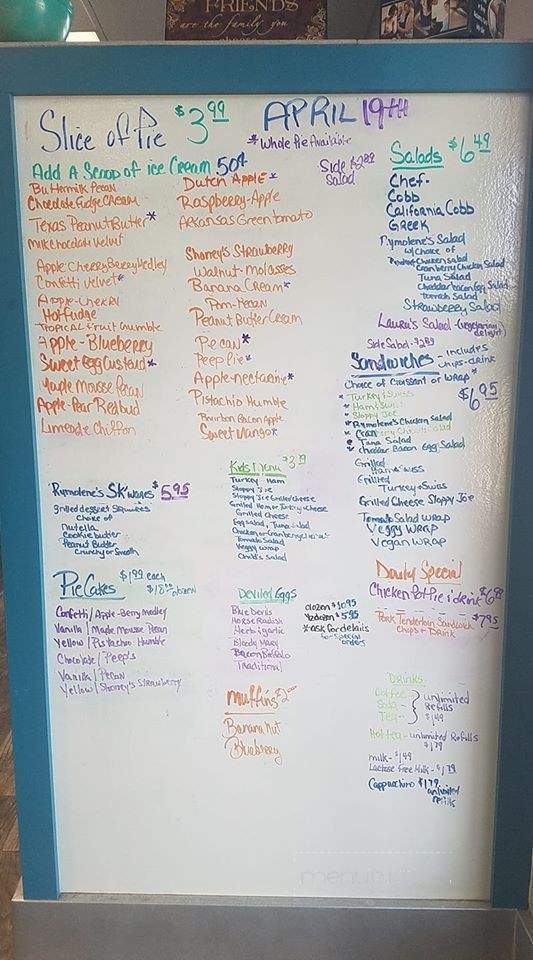 FRIENDS
are the family you
Slice of Pie $3.99
APRIL 19TH
*Whole Pie Available
Add A Scoop of ice Cream 50¢
Side Salad $2.89
Buttermilk Pecan
Chocolate Fudge CREAM
Texas Peanut Butter*
Milk Chocolate Velvet
Apple Cherry Berry Medley
Confetti Velvet*
Apple-Cherry
Hot Fudge
Tropical Fruit Crumble
Apple-Blueberry
Sweet Egg Custard*
Maple Mousse Pecan
Apple-Pear Redbud
Limeade Chiffon
Dutch Apple*
Raspberry-Apple
Arkansas Green tomato
Shoney's Strawberry
Walnut-Molasses
Banana Cream*
Pecan
Peanut Butter Cream
Pecan*
Peep Pie*
Apple-nectarine*
Pistachio Humble
Bourbon Bacon Apple
Sweet Mango*
Salads $6.49
Chef-
Cobb
California Cobb
Greek
Rymolene's Salad
w/choice of
Chicken Salad
Cranberry Chicken Salad
Tuna Salad
Cheddar bacon Egg Salad
tomato Salad
Strawberry Salad
Laura's Salad-(vegetarian delight)
Side Salad-$2.89
Sandwiches - includes chips-drink
Choice of Croissant or WRAP* $6.95
* Turkey & Swiss
* Ham & Swiss
* Sloppy Joe
* Rymolene's Chicken Salad
* Cranberry Chicken Salad
* Tuna Salad
* cheddar Bacon Egg Salad
Grilled
Ham & Swiss
Grilled
Turkey & Swiss
Grilled Cheese Sloppy Joe
Tomato Salad WRAP
Veggy WRAP
Vegan WRAP
Kids Menu $3.19
Turkey Ham
Sloppy Joe
Sloppy Joe Grilled Cheese
Grilled Ham or Turkey & Cheese
Grilled Cheese
Egg Salad, Tuna Salad
Chicken or Cranberry Chicken
Tomato Salad
Veggy WRAP
Child's Salad
Rymolene's SK'wiches $5.95
grilled dessert Squares
Choice of
Nutella
Cookie butter
Peanut Butter
Crunchy or Smooth
PieCakes $1.99 each
dozen
Confetti/Apple-Berry Medley
Vanilla/Maple Mousse Pecan
Yellow/Pistachio Humble
Chocolate/Peeps
Vanilla/Pecan
Yellow/Shoney's Strawberry
Deviled Eggs
dozen $10.95
1/2 dozen $5.95
*ask for details
for special
orders
Blue Devils
Horse Radish
Herb & garlic
Bloody Mary
Bacon Buffalo
Traditional
Daily Special
Chicken Pot Pie & drink
Pork Tenderloin Sandwich $7.95
Chips & Drink
Muffins
Banana Nut
Blueberry
Drinks
Coffee
Soda
Tea
unlimited
Refills
$1.49
Hot tea - unlimited Refills
$1.79
milk-$1.49
Lactose Free Milk-$1.79
Cappuccino $1.79
unlimited
refills
menu